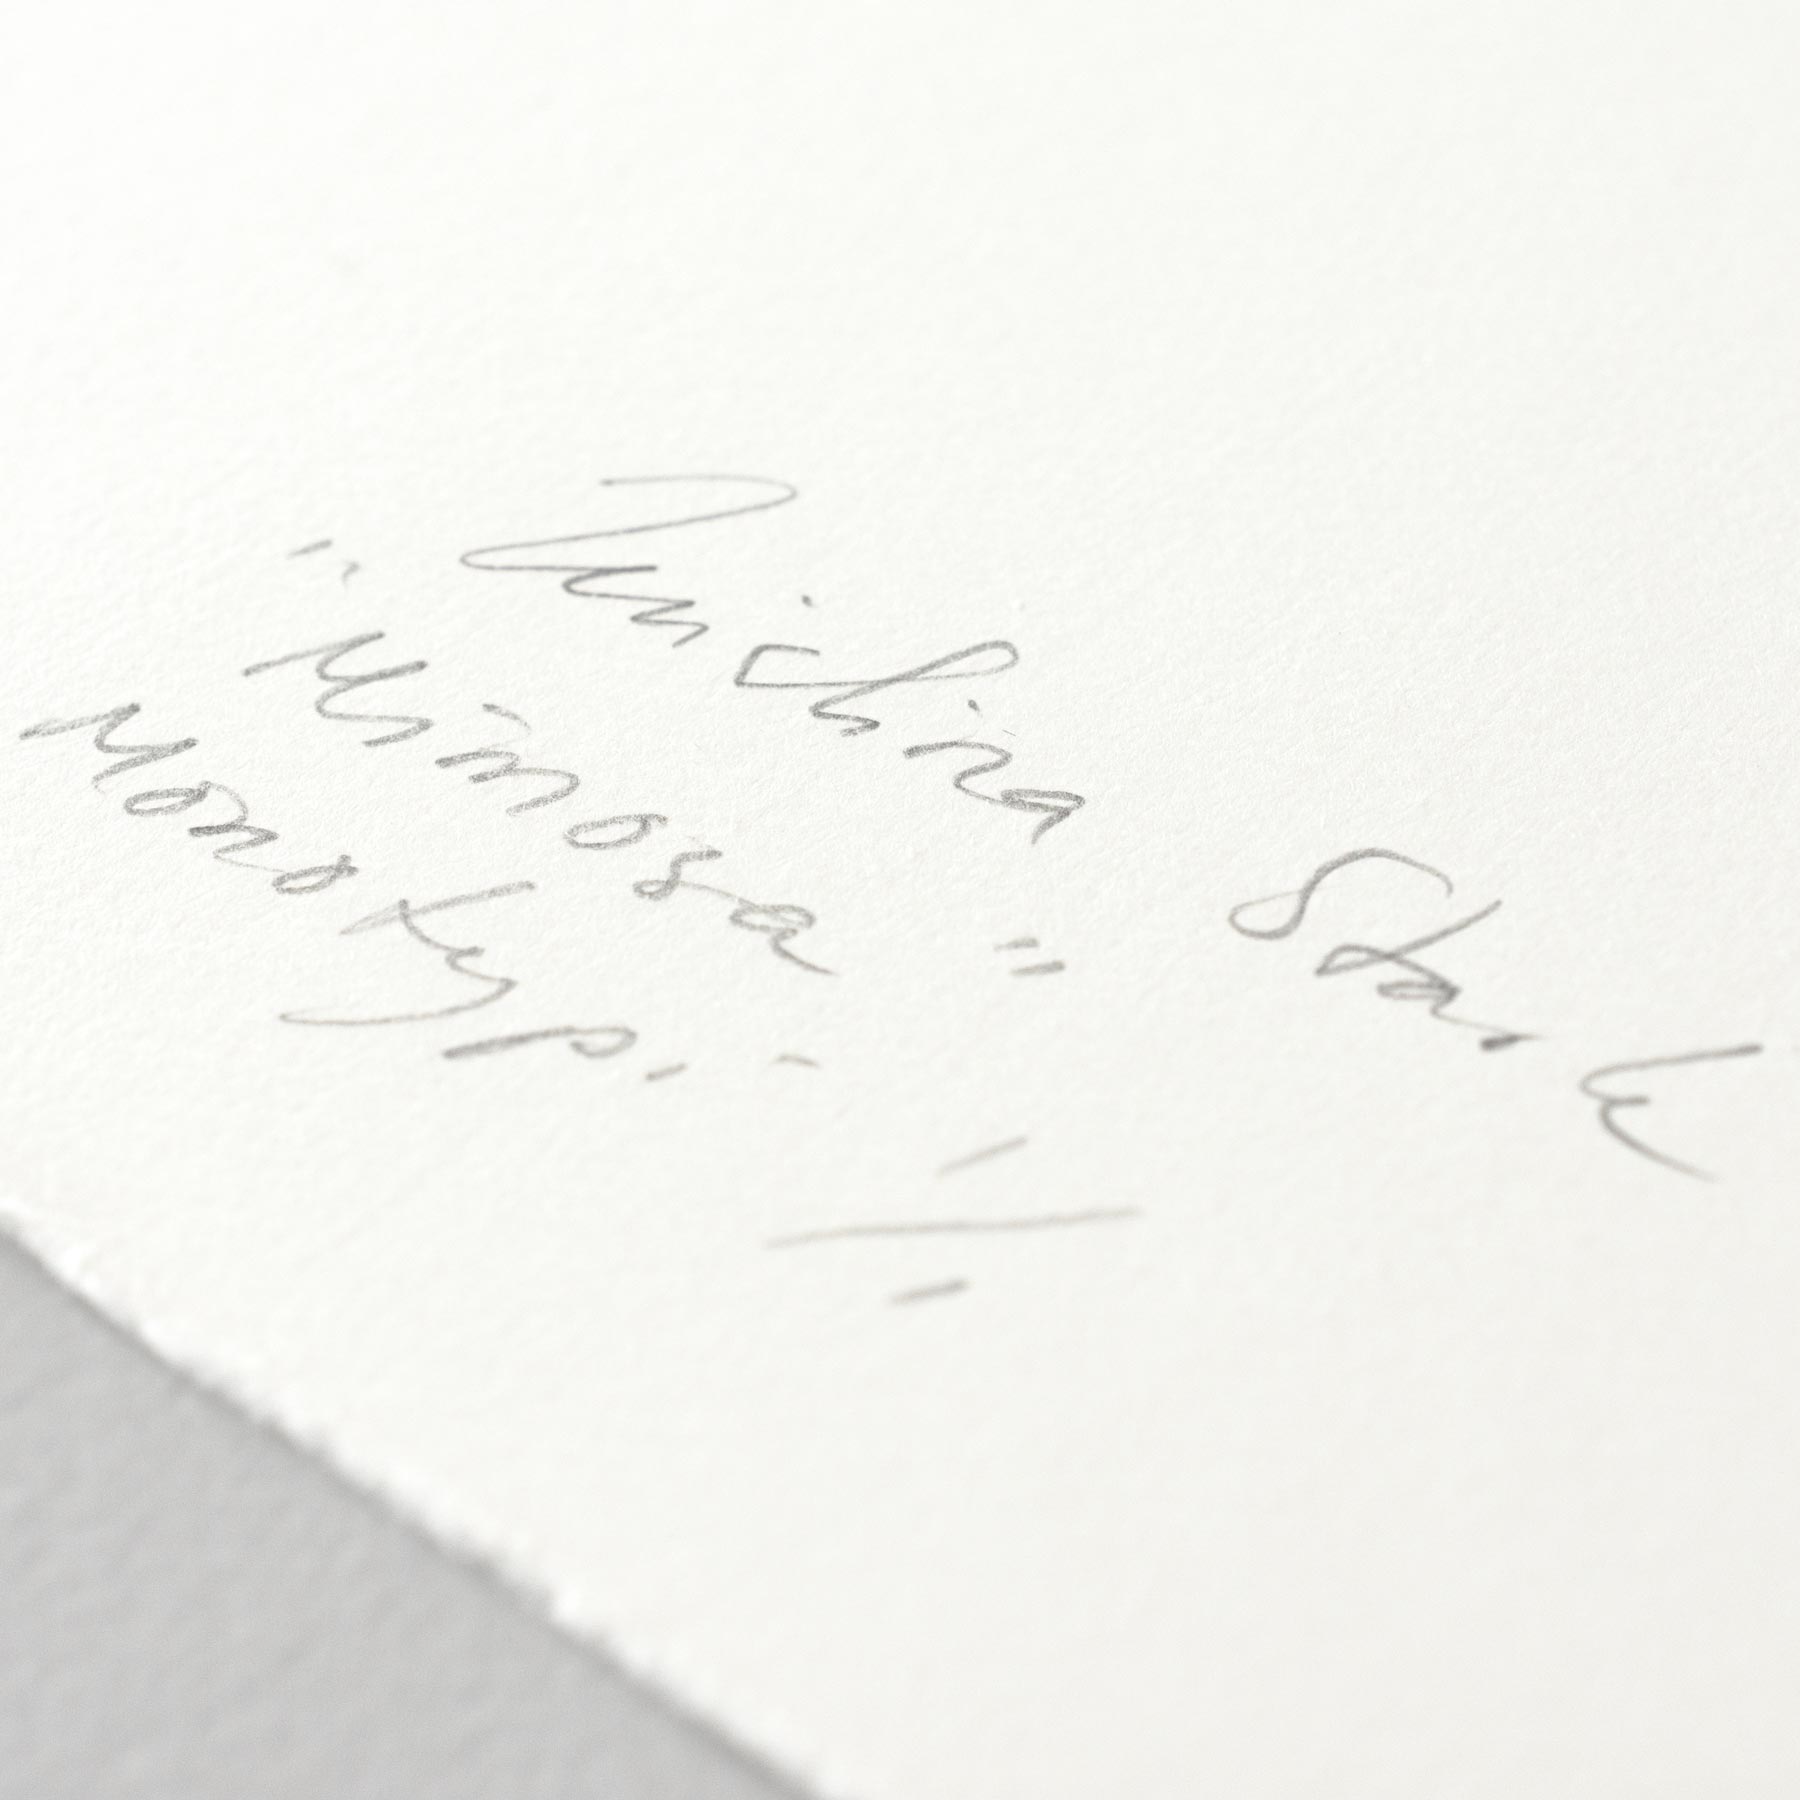 Stark
"Mimosa"
Monotypi 1/1